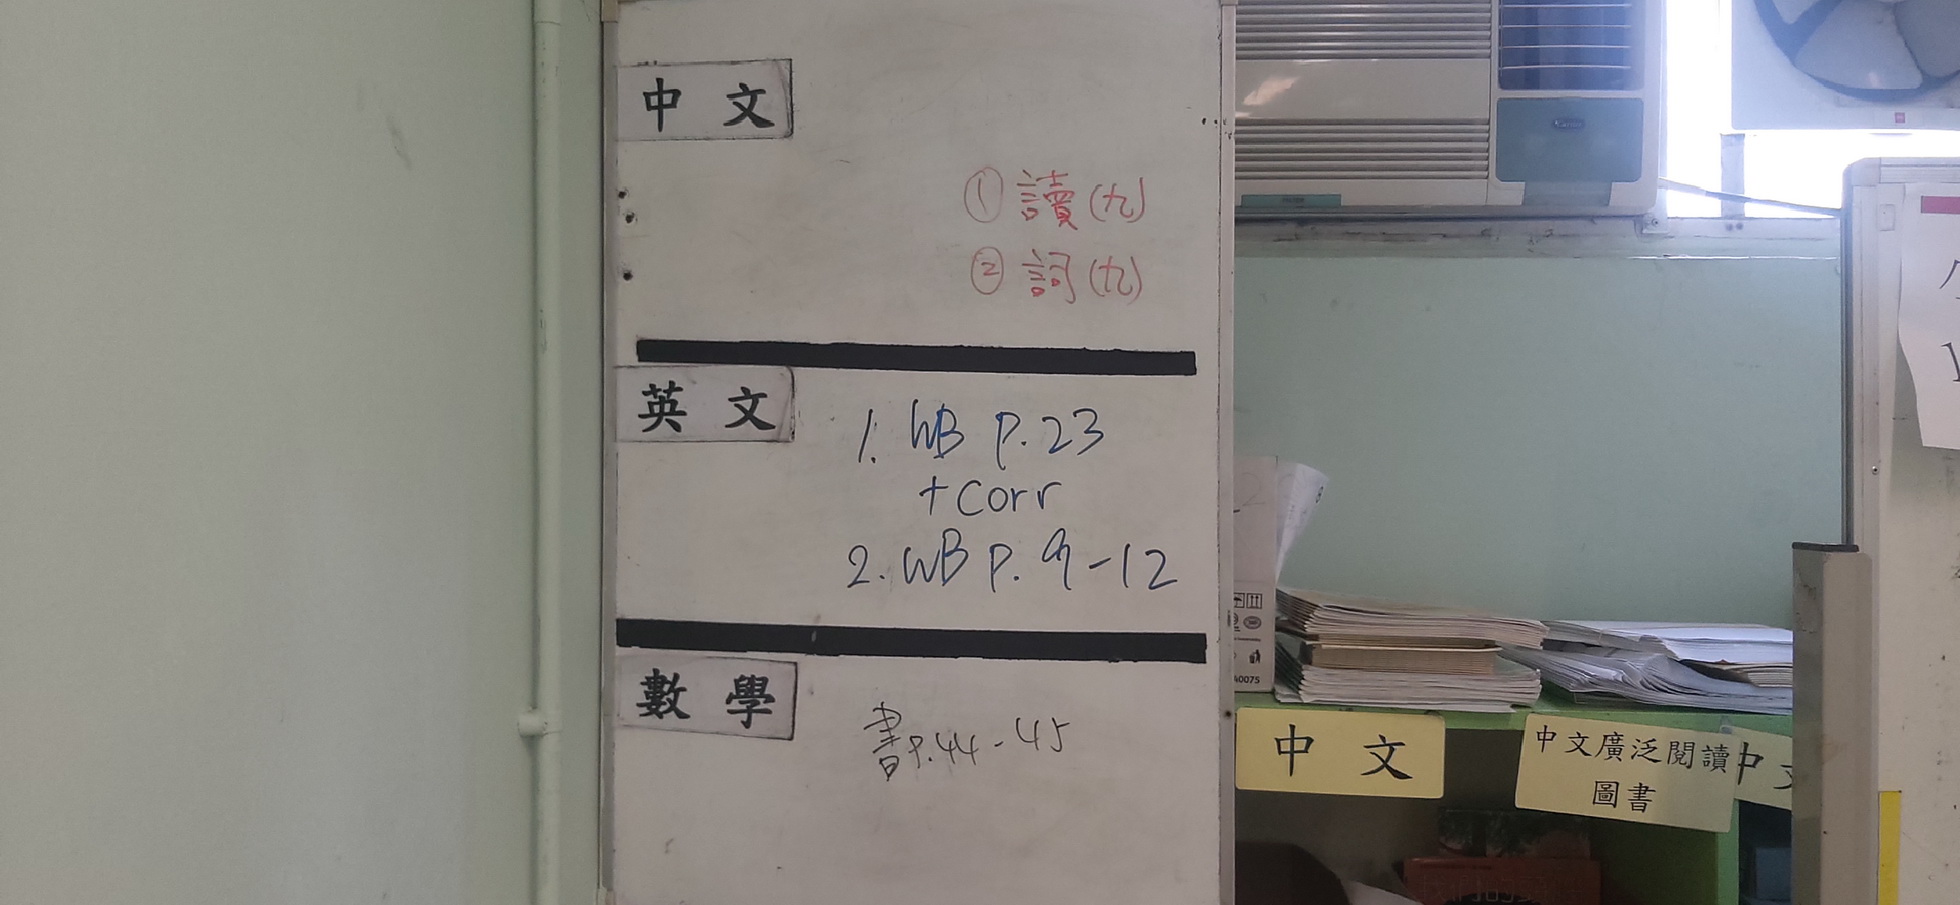 中文
① 讀(九)
② 詞(九)
英文
1. WB P.23
+ Corr
2. WB P. 9-12
數學
書P.44-45
40075
中文
中文廣泛閱讀
圖書
中文